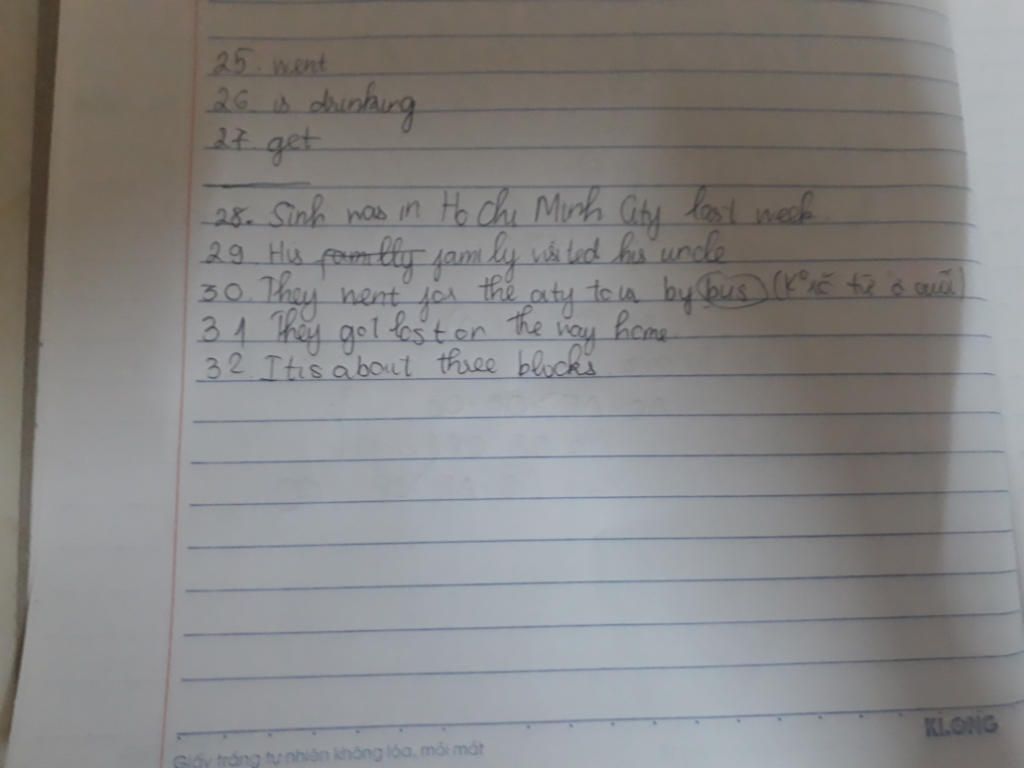 25. went
26 is drinking
27. get
28. Sinh was in Ho Chi Minh City last week.
29. His family family visited his uncle
30. They went for the city tour by bus (K° rõ từ ở cuối)
31 They got lost on the way home.
32. It is about three blocks.
KLONG
Giấy trắng tự nhiên không lóa, mỏi mắt